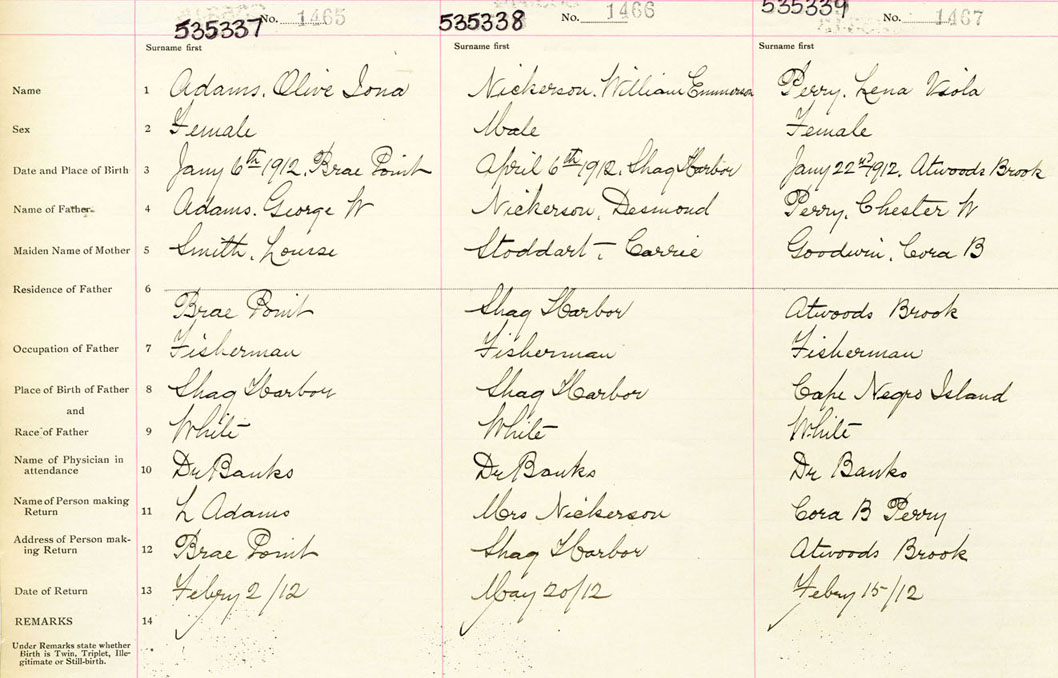 535337 No. 1465 535338 No. 1466 535339 No. 1467
Surname first Surname first Surname first
Name 1 Adams, Olive Iona Nickerson, William Emmerson Perry, Lena Viola
Sex 2 Female Male Female
Date and Place of Birth 3 Jany 6th 1912, Brae Point April 6th 1912, Shag Harbor Jany 22nd 1912, Atwoods Brook
Name of Father 4 Adams, George W Nickerson, Desmond Perry, Chester W
Maiden Name of Mother 5 Smith, Louise Stoddart, Carrie Goodwin, Cora B
Residence of Father 6
Brae Point Shag Harbor Atwoods Brook
Occupation of Father 7 Fisherman Fisherman Fisherman
Place of Birth of Father 8 Shag Harbor Shag Harbor Cape Negro Island
and
Race of Father 9 White White White
Name of Physician in
attendance 10 Dr Banks Dr Banks Dr Banks
Name of Person making
Return 11 L Adams Mrs Nickerson Cora B Perry
Address of Person mak-
ing Return 12 Brae Point Shag Harbor Atwoods Brook
Date of Return 13 Febry 2/12 May 20/12 Febry 15/12
REMARKS 14
Under Remarks state whether
Birth is Twin, Triplet, Ille-
gitimate or Still-birth.